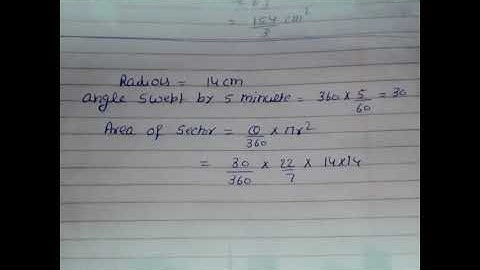 = 154 cm²
3
Radious = 14 cm
angle swept by 5 minuete = 360 × 5/60 = 30
Area of Sector = θ/360 × πr²
= 30/360 × 22/7 × 14×14